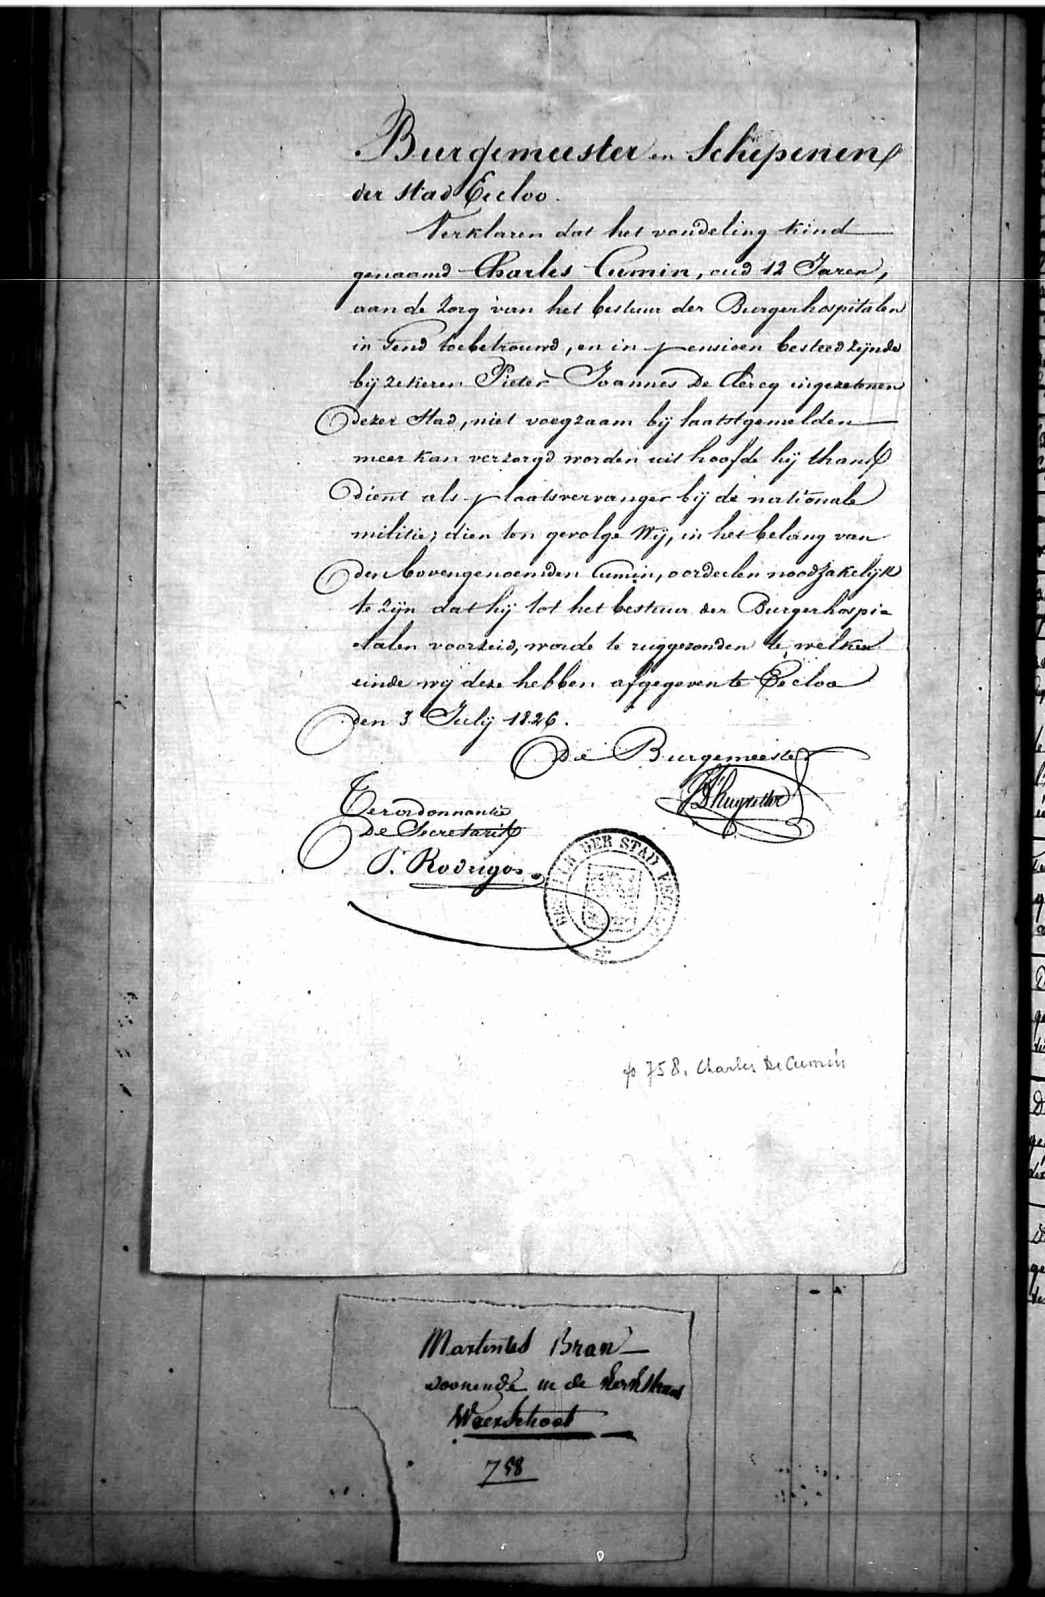 Burgemeester en Schepenen
der stad Eecloo.
Verklaren dat het vondeling kind
genaamd Charles Cumin, oud 12 Jaren,
aan de zorg van het bestuur der Burgerhospitalen
in Gend toebetrouwd, en in pensioen besteed zijnde
bij zekeren Pieter Joannes De Clercq ingezetenen
dezer stad, niet voegzaam bij laatstgemelden
meer kan verzorgd worden uit hoofde hij thans
dient als plaatsvervanger bij de nationale
militie; dien ten gevolge Wij, in het belang van
den bovengenoemden Cumin, oordeelen noodzakelijk
te zijn dat hij tot het bestuur der Burgerhospi=
talen voorzeid, worde te ruggezonden te welken
einde wij deze hebben afgegeven te Eecloo
den 3 Julij 1826.
De Burgemeester
Ter ordonnantie
De Secretaris
J. Rodrigos
DER STAD
p 758. Charles De Cumin
Martinus Bran
woonende in de Kerkstraat
Waerschoot
758